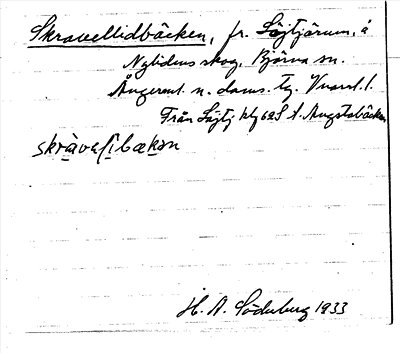 Skravellidbäcken, fr. Löjtjärnen, å
Nylidens skog, Björna sn.
Ångerml. n. doms. tg. V-norrl. l.
Från Löjtj blg 62S t. Angstabäcken
skràvəlìbækən
H. A. Söderberg 1933